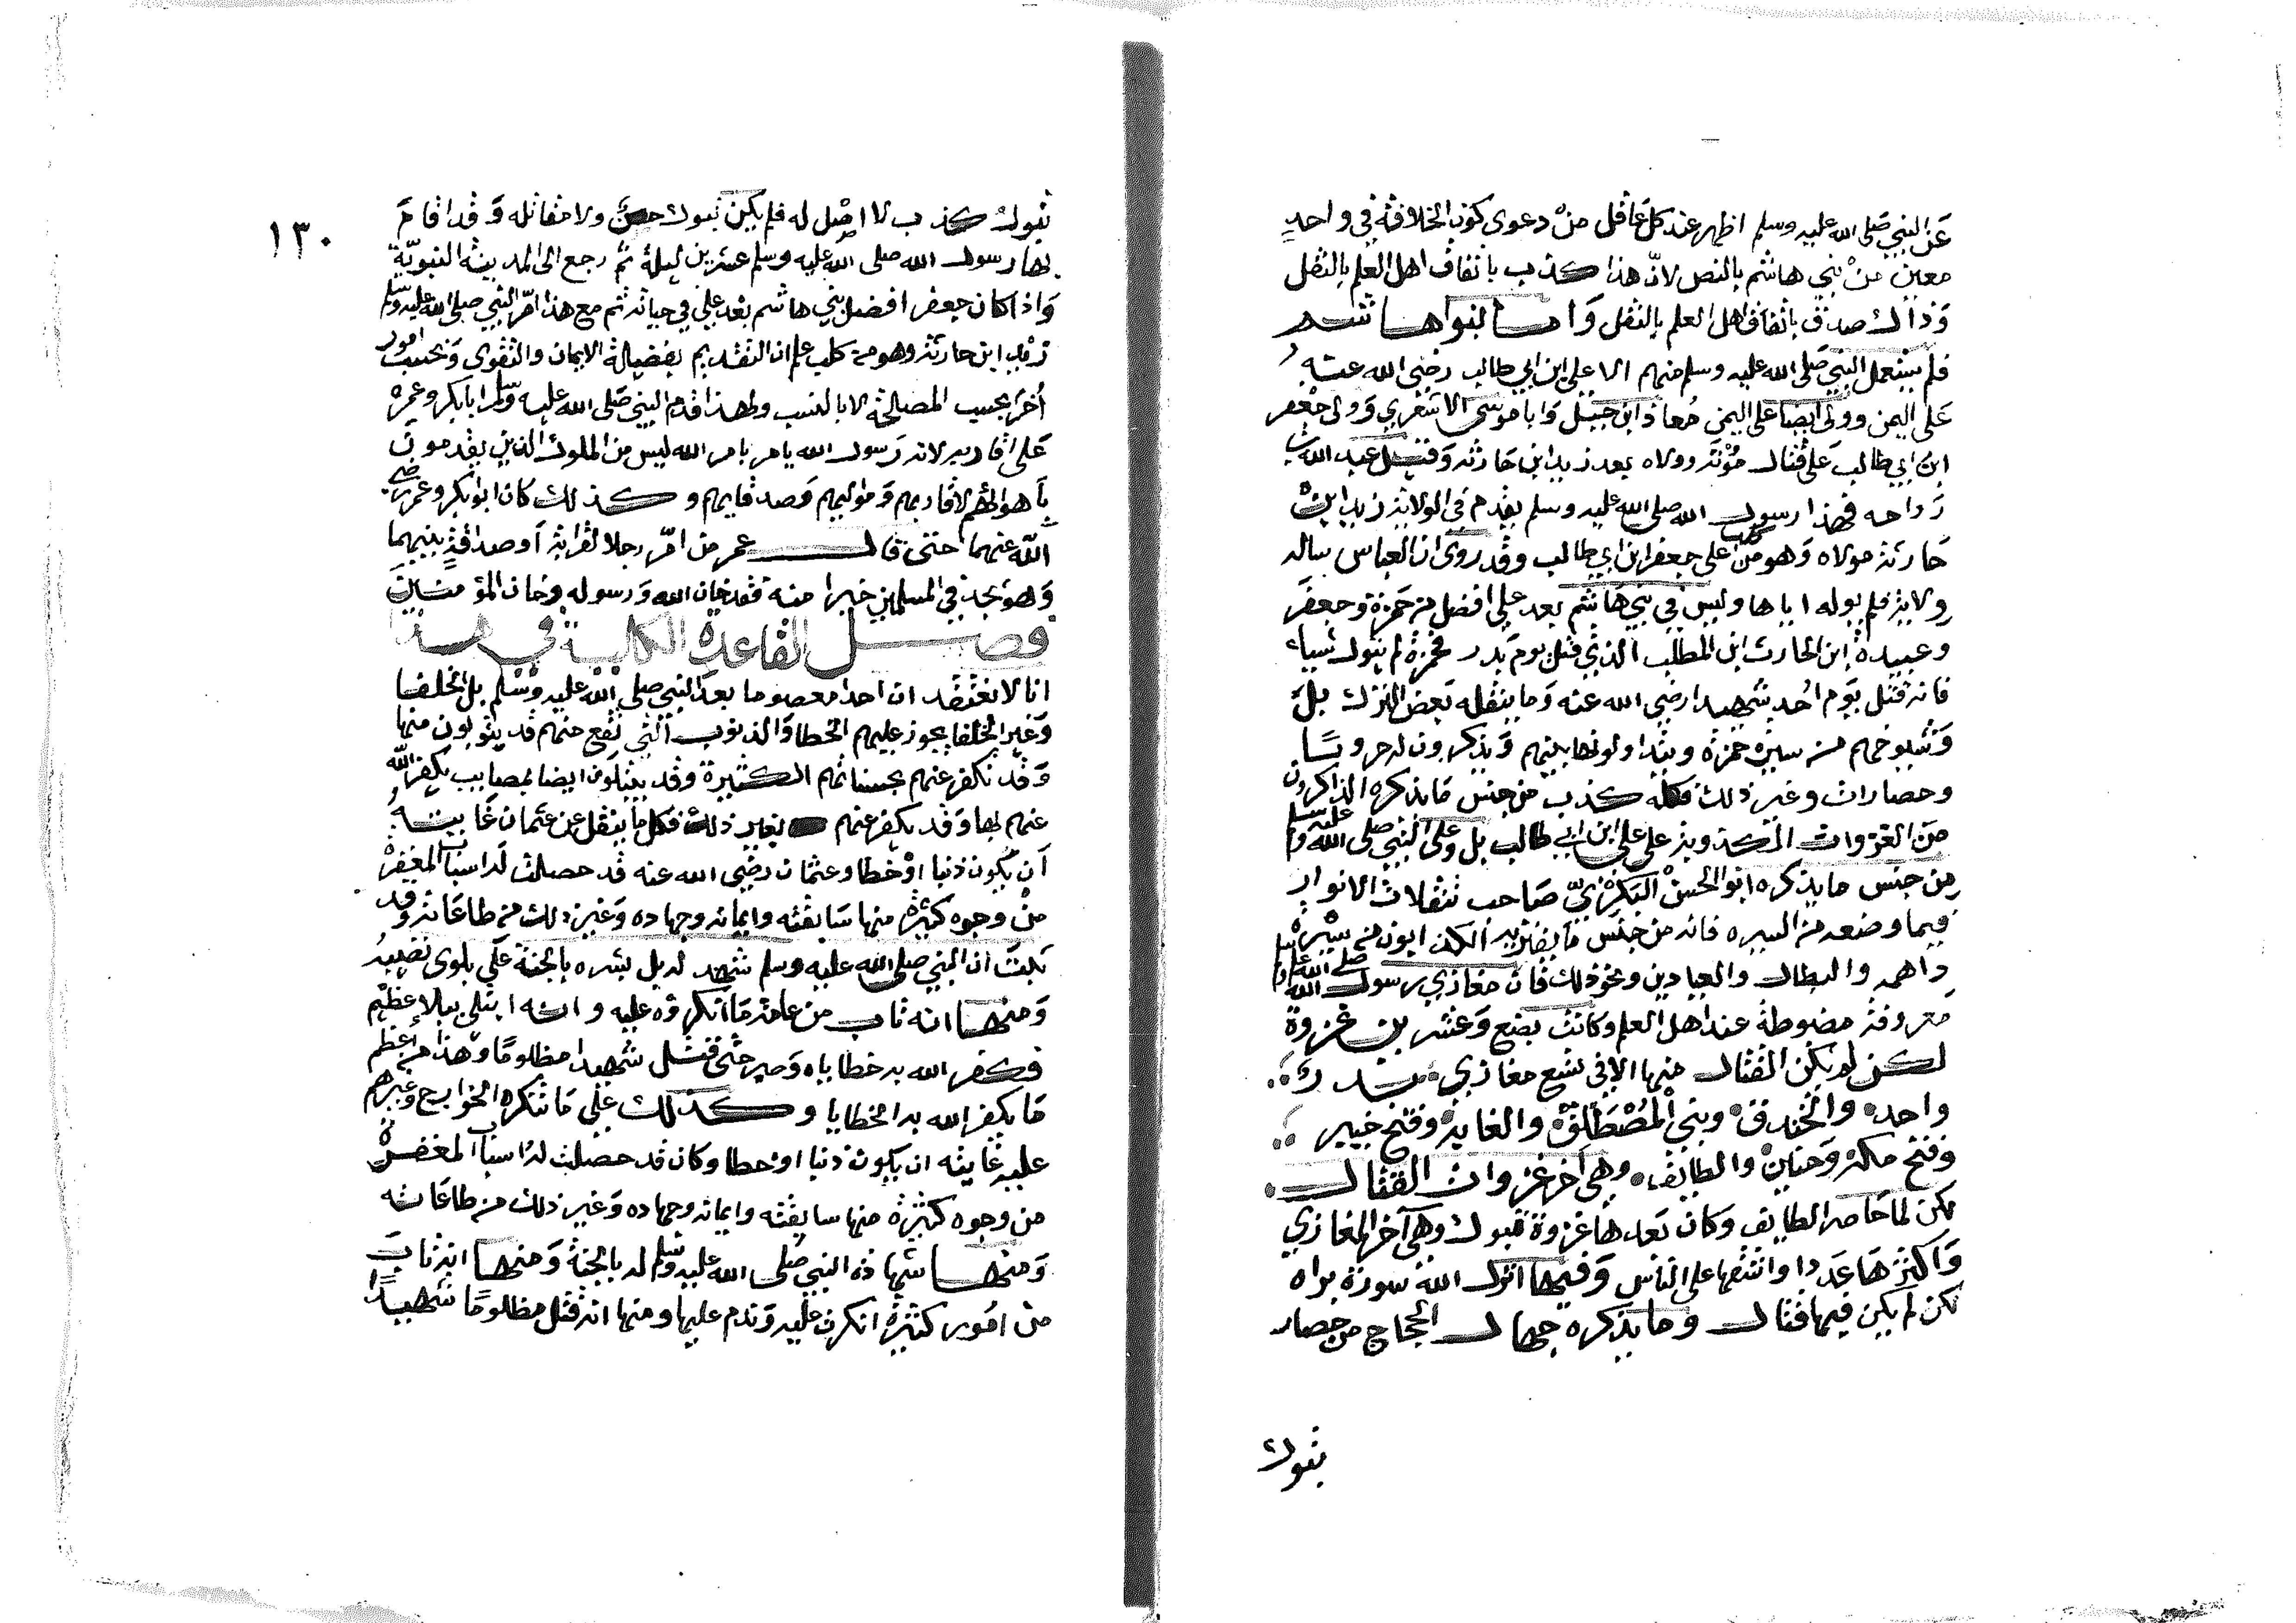 عن النبي صلى الله عليه وسلم اظهر عند كل عاقل من دعوى كون الخلافة في واحد
معين من بني هاشم بالنص لان هذا كذب باتفاق اهل العلم بالنقل
وذاك صدق باتفاق اهل العلم بالنقل واما بنوا هاشم
فلم يستعمل النبي صلى الله عليه وسلم منهم الا علي ابن ابي طالب رضي الله عنه
على اليمن وولى ايضا على اليمن معاذ ابن جبل وابا موسى الاشعري وولى جعفر
ابن ابي طالب على قتال مؤتة وولاه بعد زيد ابن حارثة وقبل عبد الله بن
رواحه فهذا رسول الله صلى الله عليه وسلم يقدم في الولاية زيد ابن
حارثة مولاه وهو من كلب على جعفر ابن ابي طالب وقد روى ان العباس ساله
ولاية فلم يوله اياها وليس في بني هاشم بعد علي افضل من حمزة وجعفر
وعبيدة ابن الحارث ابن المطلب الذي قتل يوم بدر فحمزة لم يتول شياء
فانه قتل يوم احد شهيدا رضي الله عنه وما ينقله بعض الترك بل
وشيوخهم من سيرة حمزة ويتداولونها بينهم ويذكرون له حروبًا
وحصارات وغير ذلك فكله كذب من جنس ما يذكره الذاكرون
من الغزوات المكذوبة على علي ابن ابي طالب بل وعلى النبي صلى الله عليه وسلم
من جنس ما يذكره ابو الحسن البكري صاحب تنقلات الانوار
فيما وضعه من السيره فانه من جنس ما يفتريه الكذابون من سيرة
داهمه والبطال والعيارين ونحو ذلك فان مغازي رسول الله صلى الله عليه وسلم
معروفة مضبوطة عند اهل العلم وكانت بضع وعشرين غزوة
لكن لم يكن القتال منها الا في تسع مغازي بدر
واحد والخندق وبني المُصْطَلِقْ والغابة وفتح خيبر
وفتح مكة وحنين والطايف وهي آخر غزوات القتال
لكن لما حاصر الطايف وكان بعدها غزوة تبوك وهي آخر المغازي
واكثرها عددا واشقها على الناس وفيها انزل الله سورة براه
لكن لم يكن فيها قتال وما يذكره جهال الحجاج من حصار
تبوك
١٣٠
تبوك كذب لا اصل له فلم يكن بتبوك حصن ولا مقاتله وقد اقام
بها رسول الله صلى الله عليه وسلم عشرين ليلة ثم رجع الى المدينة النبويّة
واذا كان جعفر افضل بني هاشم بعد علي في حياته ثم مع هذا امّر النبي صلى الله عليه وسلم
زيد ابن حارثة وهو من كلب علم ان التقديم بفضيلة الايمان والتقوى وبحسب امور
أخر بحسب المصلحة لا بالنسب ولهذا قدم النبي صلى الله عليه وسلم ابا بكر وعمر
على اقاربه لانه رسول الله يامر بامر الله ليس من الملوك الذين يقدمون
باهوائهم لاقاربهم ومواليهم وصدقايهم وكذلك كان ابو بكر وعمر رضي
الله عنهما حتى قال عمر من امّر رجلا لقرابة او صداقة بينهما
وهو يجد في المسلمين خيرا منه فقد خان الله ورسوله وخان المؤمنين
فصل القاعدة الكلية في هذا
انا لا نعتقد ان احدا معصوما بعد النبي صلى الله عليه وسلم بل الخلفا
وغير الخلفا يجوز عليهم الخطا والذنوب التي تقع منهم قد يتوبون منها
وقد تكفر عنهم بحسناتهم الكثيرة وقد يبتلون ايضا بمصايب يكفر الله
عنهم بها وقد يكفر عنهم بغير ذلك فكل ما ينقل عن عثمان غايته
ان يكون ذنبا او خطا وعثمان رضي الله عنه قد حصلت له اسباب المغفرة
من وجوه كثيرة منها سابقته وايمانه وجهاده وغير ذلك من طاعاته وقد
ثبت ان النبي صلى الله عليه وسلم شهد له بل بشره بالجنة على بلوى تصيبه
ومنها انه تاب من عامة ما انكروه عليه وانه ابتلي ببلا عظيم
فكفر الله به خطاياه وصبر حتى قتل شهيدا مظلومًا وهذا من اعظم
ما يكفر الله به الخطايا وكذلك علي ما تنكره الخوارج وغيرهم
عليه غايته ان يكون ذنبا او خطا وكان قد حصلت له اسباب المغفرة
من وجوه كثيرة منها سابقته وايمانه وجهاده وغير ذلك من طاعاته
ومنها شهادة النبي صلى الله عليه وسلم له بالجنة ومنها انه تاب
من امور كثيرة انكرت عليه وندم عليها ومنها انه قتل مظلومًا شهيدًا